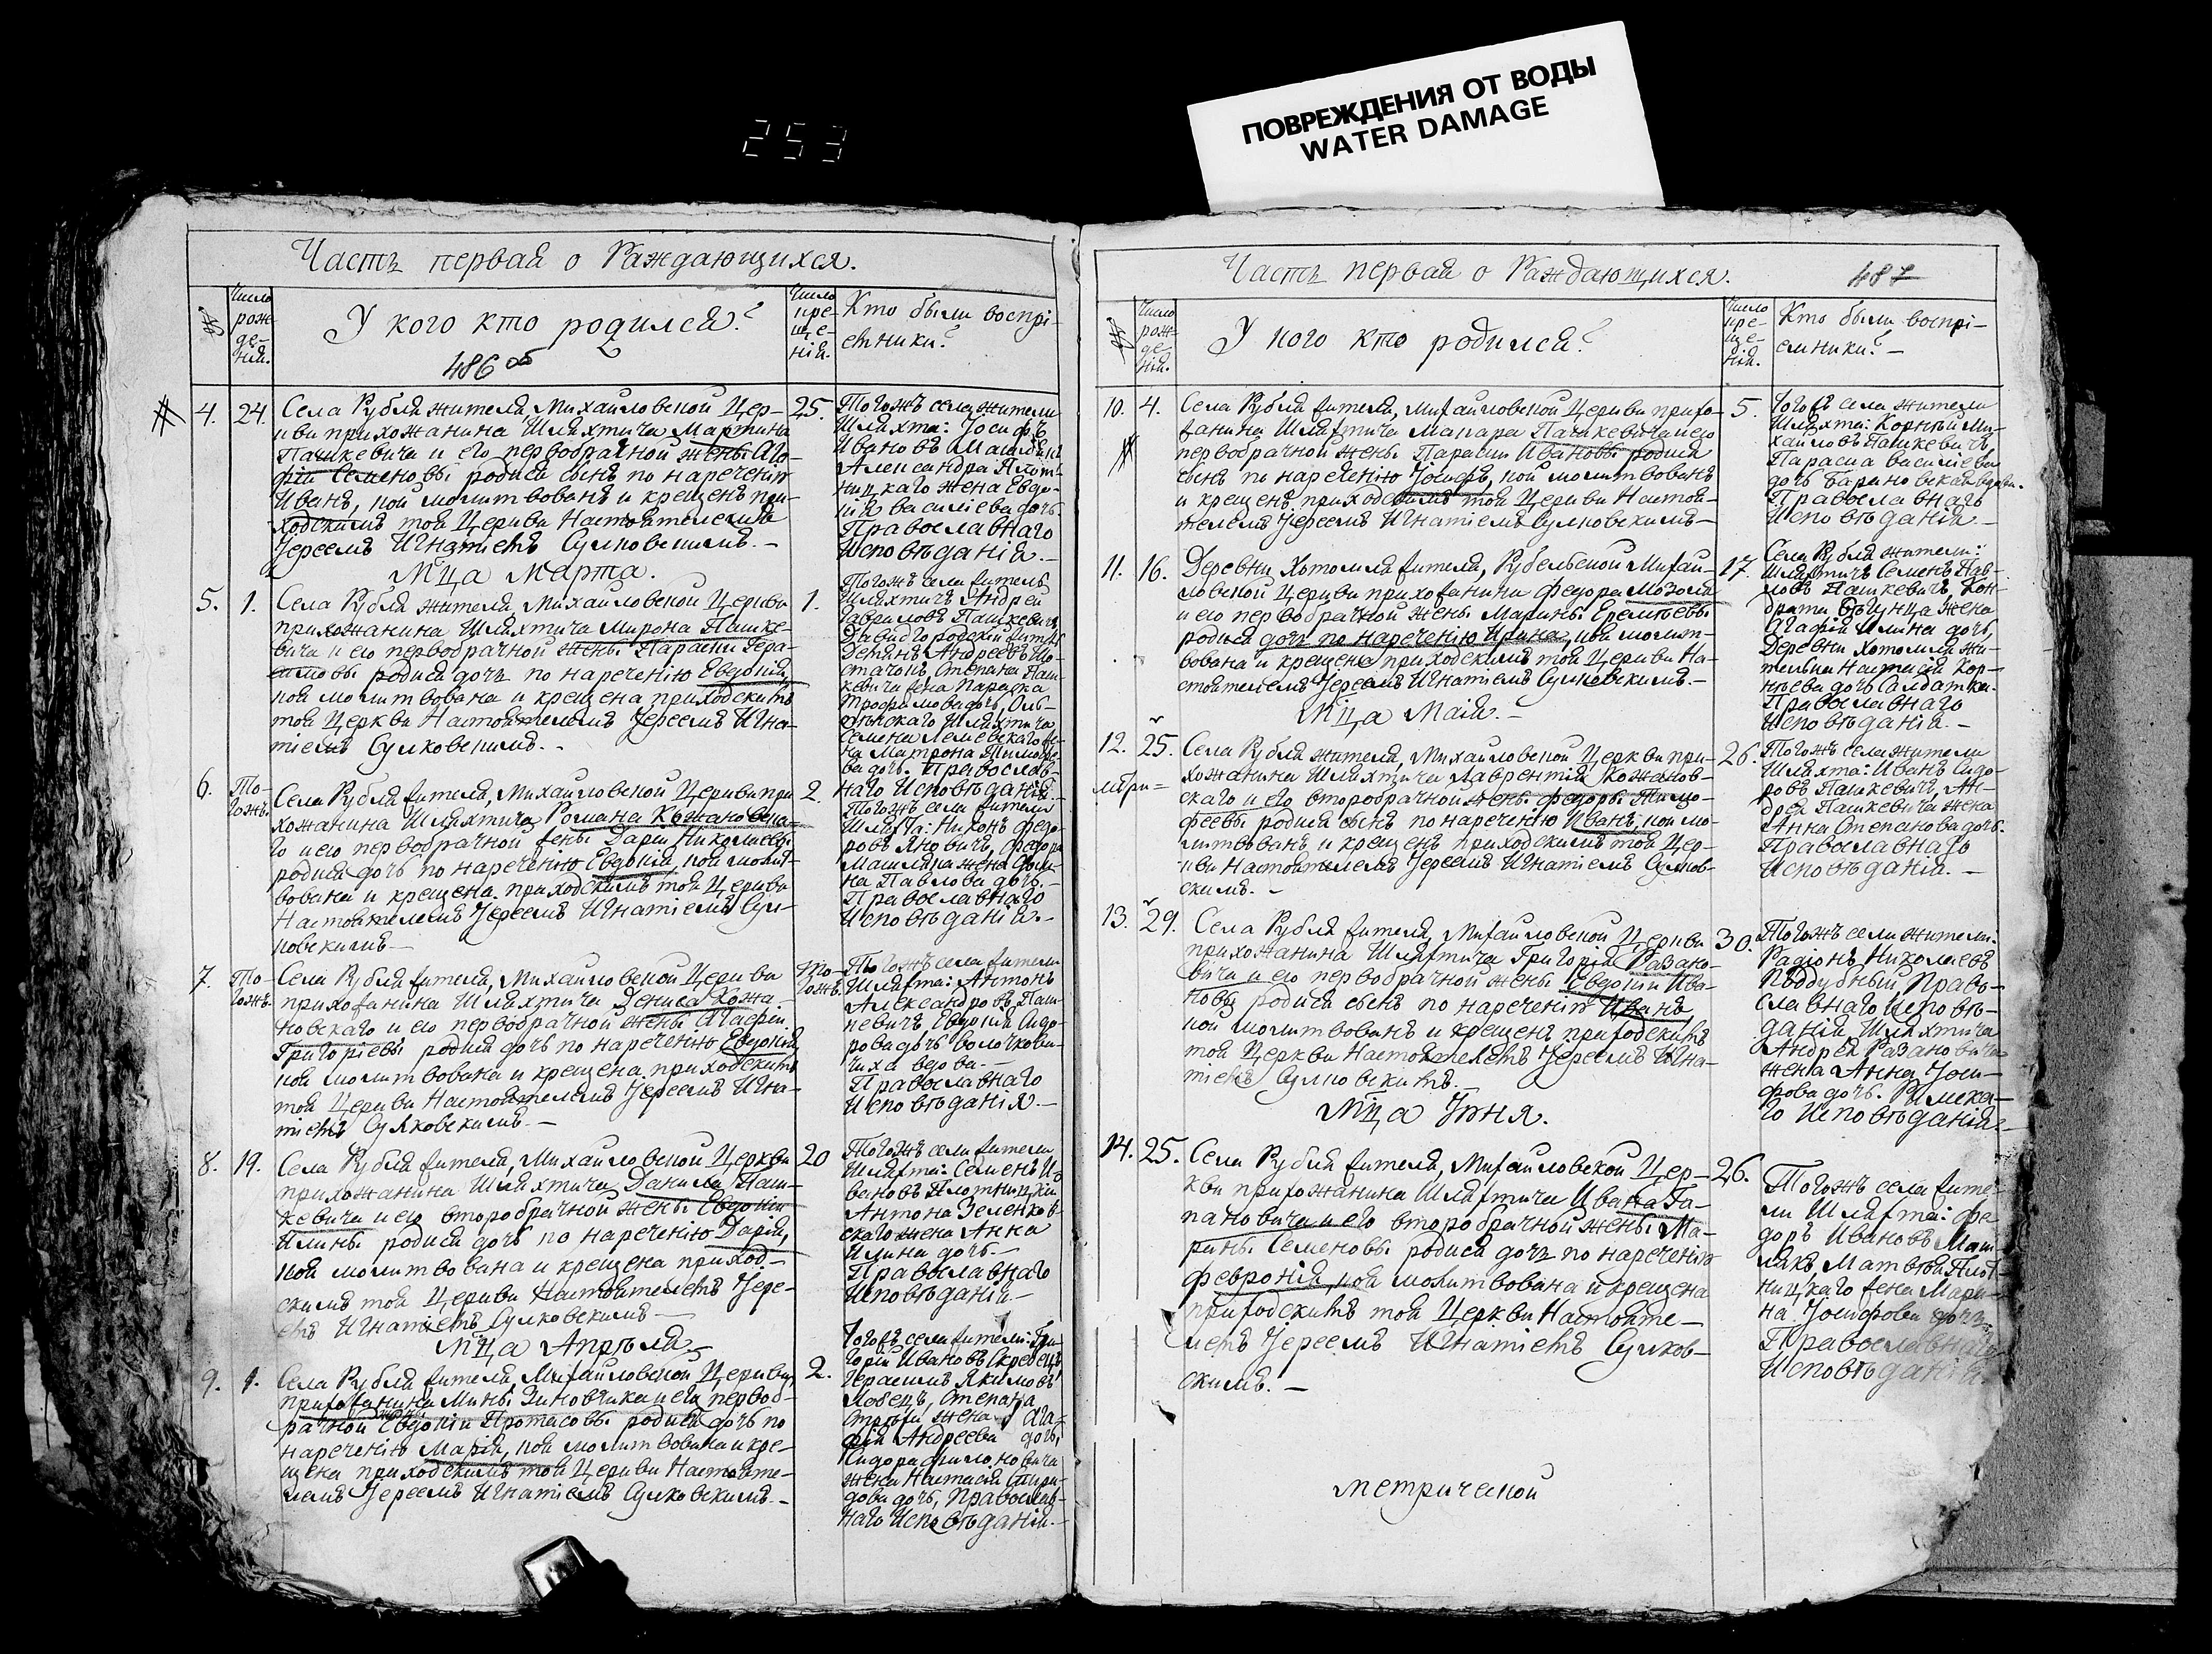 253
ПОВРЕЖДЕНИЯ ОТ ВОДЫ
WATER DAMAGE
Часть первая о Раждающихся.
№
Число
рож-
де-
нія.
У кого кто родился?
486 об
Число
кре-
ще-
нія.
Кто были воспрі-
емники?
4.
24.
Села Рубля жителя, Михайловской Цер-
кви прихожанина Шляхтича Мартина
Пашкевича и его первобрачной жены Ага-
фіи Семеновы родися сынъ по нареченію
Иванъ, кой молитвованъ и крещенъ при-
ходскимъ той Церкви Настоятелемъ
Іереемъ Игнатіемъ Сулковскимъ.-
25.
Тогожъ села жители
Шляхта: Іосифъ
Ивановъ
Александра Плот-
ницкаго жена Евдо-
кія Василіева дочь
Православнаго
Исповѣданія.-
Мца Марта.
5.
1.
Села Рубля жителя, Михайловской Церкви
прихожанина Шляхтича Мирона Пашке-
вича и его первобрачной жены Параски Гера-
симовы родися дочь по нареченію Евдокія,
коя молитвована и крещена приходскимъ
той Церкви Настоятелемъ Іереемъ Игна-
тіемъ Сулковскимъ.-
1.
Тогожъ села житель
Шляхтичъ Андрей
Гавриловъ Пашкевичъ,
Давидгородскій
Андреевъ
Степана Паш-
кевича жена Параска
Трофимова дочь,
Шляхтича
Семена
на Матрона Тимофѣе-
ва дочь. Православ-
наго Исповѣданія.
6.
То-
гожъ.
Села Рубля жителя, Михайловской Церкви при
хожанина Шляхтича Романа Кожановска-
го и его первобрачной жены Даріи Николаевы
родися дочь по нареченію Евдокія, коя молит-
вована и крещена приходскимъ той Церкви
Настоятелемъ Іереемъ Игнатіемъ Сул-
ковскимъ.-
2.
Тогожъ села жители
Шляхта: Никонъ Федо-
ровъ Яновичъ, Федора
Машляка жена
на Павлова дочь.-
Православнаго
Исповѣданія.-
7.
То-
гожъ.
Села Рубля жителя, Михайловской Церкви
прихожанина Шляхтича Дениса Кожа-
новскаго и его первобрачной жены Агафіи
Григоріевы родися дочь по нареченію Евдокія
коя молитвована и крещена приходскимъ
той Церкви Настоятелемъ Іереемъ Игна-
тіемъ Сулковскимъ.-
То-
гожъ.
Тогожъ села жители
Шляхта: Антонъ
Александровъ Паш-
кевичъ, Евдокія Сидо-
рова дочь Волочкови-
чиха вдова.
Православнаго
Исповѣданія.-
8.
19.
Села Рубля жителя, Михайловской Церкви
прихожанина Шляхтича Данила Паш-
кевича и его второбрачной жены Евдокіи
Илины родися дочь по нареченію Дарія,
коя молитвована и крещена приход-
скимъ той Церкви Настоятелемъ Іере-
емъ Игнатіемъ Сулковскимъ.-
20
Тогожъ села жители
Шляхта: Семенъ И-
вановъ Плотницкій
Антона Зеленков-
скаго жена Анна
Илина дочь.-
Православнаго
Исповѣданія.-
Мца Апрѣля.-
9.
1.
Села Рубля жителя, Михайловской Церкви,
прихожанина Мины Зиновчика и его первоб-
рачной жены Евдокіи Протасовы родися дочь по
нареченію Марія, коя молитвована и кре-
щена приходскимъ той Церкви Настояте-
лемъ Іереемъ Игнатіемъ Сулковскимъ.-
2.
Тогожъ села жители: Гри-
горій Ивановъ Скребецъ
Герасимъ Якимовъ
Ловецъ, Степана
жена Ага-
фія Андреева дочь,
Сидора Филоновича
жена Настасія Спири-
дова дочь, Православ-
наго Исповѣданія.-
Часть первая о Раждающихся.
487
№
Число
рож-
де-
нія.
У кого кто родился?
Число
кре-
ще-
нія.
Кто были воспрі-
емники?-
10.
4.
Села Рубля жителя, Михайловской Церкви прихо-
жанина Шляхтича Макара Пашкевича и его
первобрачной жены Параски Ивановы родися
сынъ по нареченію Іосифъ, кой молитвованъ
и крещенъ приходскимъ той Церкви Настоя-
телемъ Іереемъ Игнатіемъ Сулковскимъ-
5.
Тогожъ села жители
Шляхта: Корній Ми-
хайловъ Пашкевичъ
Параска Василіева
дочь вдова.
Православнаго
Исповѣданія.-
11.
16.
Деревни Хотомля жителя, Рубельской Михай-
ловской Церкви прихожанина Федора Мозоля
и его первобрачной жены Марины Еремѣевы
родися дочь по нареченію Ирина, коя молит-
вована и крещена приходскимъ той Церкви На-
стоятелемъ Іереемъ Игнатіемъ Сулковскимъ.-
17.
Села Рубля жители:
Шляхтичъ Семенъ Пав-
ловъ Пашкевичъ, Кон-
драта жена
Агафія Илина дочь,
Деревни Хотомля жи-
тельки Настасія Кор-
нѣева дочь Салдатка.
Православнаго
Исповѣданія.-
Мца Маія.-
12.
25.
Села Рубля жителя, Михайловской Церкви при-
хожанина Шляхтича Лаврентія Кожанов-
скаго и его второбрачной жены Федоры Тимо-
феевы родися сынъ по нареченію Иванъ, кой мо-
литвованъ и крещенъ приходскимъ той Цер-
кви Настоятелемъ Іереемъ Игнатіемъ Сулков-
скимъ.-
26.
Тогожъ села жители
Шляхта: Иванъ Сидо-
ровъ Пашкевичъ, Ан-
дрея Пашкевича жена
Анна Степанова дочь.
Православнаго
Исповѣданія.-
13.
29.
Села Рубля жителя, Михайловской Церкви
прихожанина Шляхтича Григорія Разано-
вича и его первобрачной жены Евдокіи Ива-
новы родися сынъ по нареченію Иванъ
кой молитвованъ и крещенъ приходскимъ
той Церкви Настоятелемъ Іереемъ Игна-
тіемъ Сулковскимъ.-
30.
Тогожъ села жители:
Радіонъ Николаевъ
Поддубный Право-
славнаго Исповѣ-
данія, Шляхтича
Андрея Разановича
жена Анна Іоси-
фова дочь. Римска-
го Исповѣданія.-
Мца Іюня.
14.
25.
Села Рубля жителя, Михайловской Цер-
кви прихожанина Шляхтича Ивана Га-
пановича и его второбрачной жены Ма-
рины Семеновы родися дочь по нареченію
Февронія, коя молитвована и крещена
приходскимъ той Церкви Настояте-
лемъ Іереемъ Игнатіемъ Сулков-
скимъ.-
26.
Тогожъ села жите-
ли Шляхта: Фе
доръ Ивановъ Маш-
лякъ Матвѣя Плот-
ницкаго жена Мари-
на Іосифова дочь
Православнаго
Исповѣданія
метрической